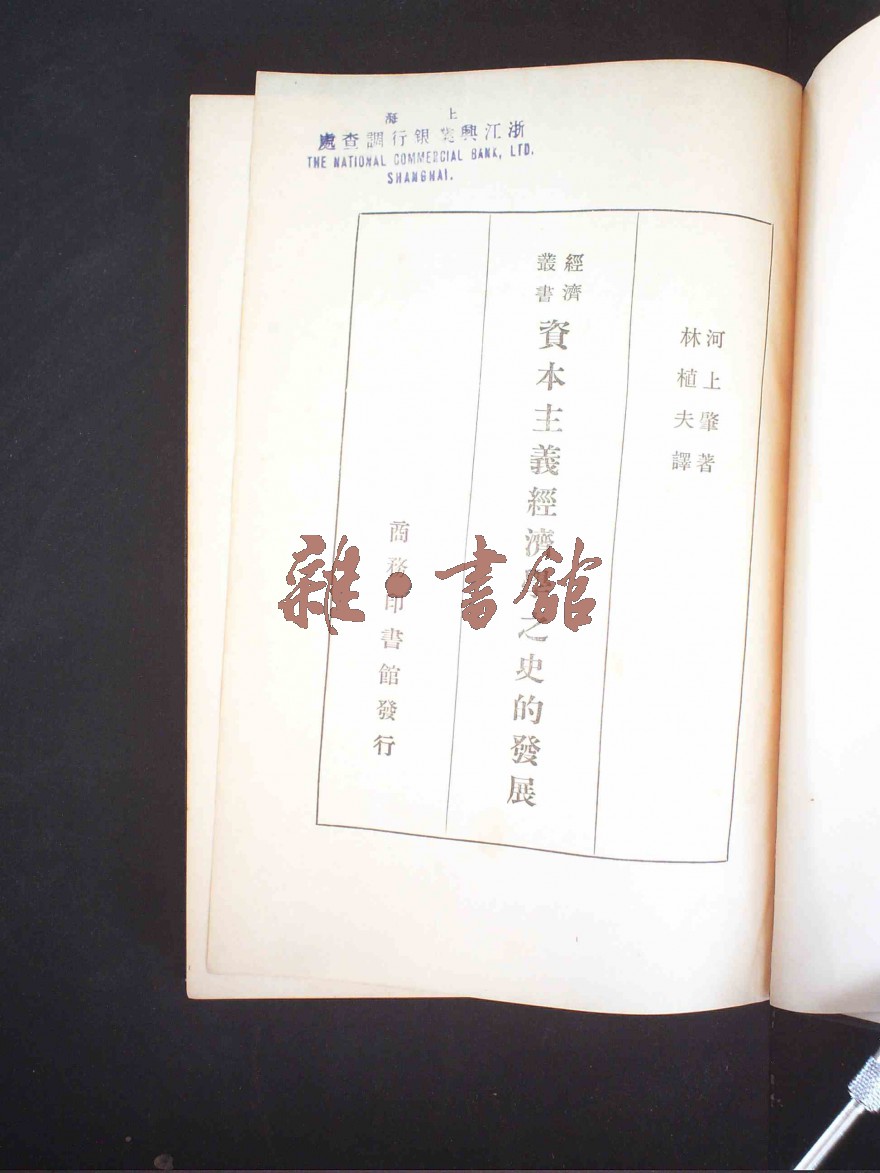 上海
浙江興業銀行調查處
THE NATIONAL COMMERCIAL BANK, LTD.
SHANGHAI.
河上肇著
林植夫譯
經濟
叢書
資本主義經濟學之史的發展
商務印書館發行
雜·書館